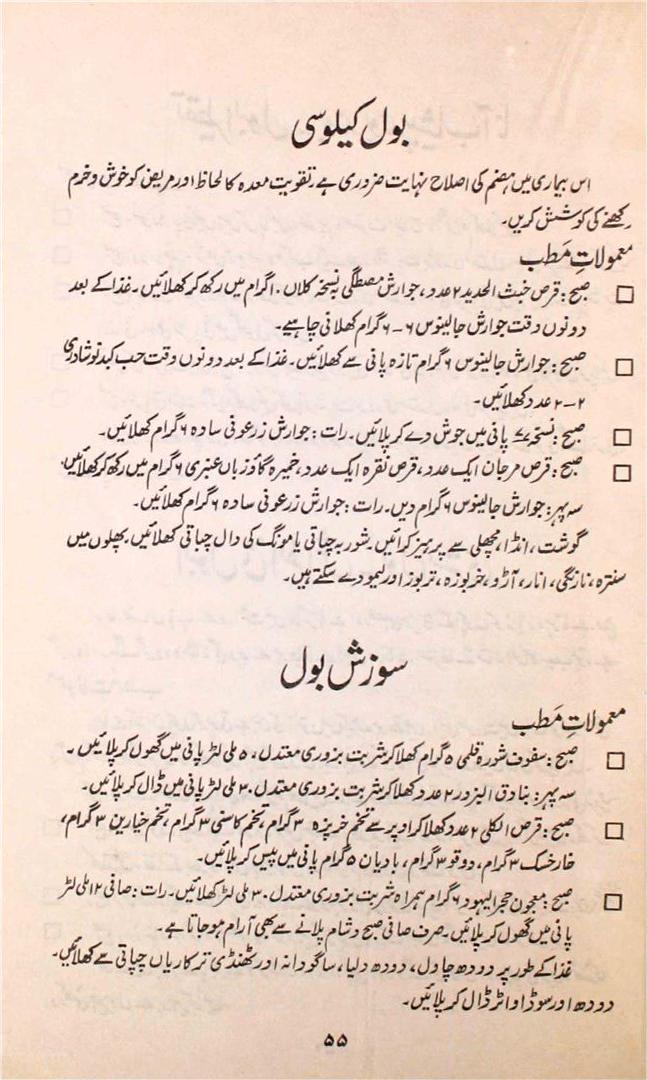 بول کیلوسی
اس بیماری میں ہضم کی اصلاح نہایت ضروری ہے، تقویت معدہ کا لحاظ اور مریض کو خوش و خرم
رکھنے کی کوشش کریں۔
معمولاتِ مَطب
□ صبح: قرص خبث الحدید ۲ عدد، جوارش مصطگی بہ نسخہ کلاں ۱۰ گرام میں رکھ کر کھلائیں۔ غذا کے بعد
دونوں وقت جوارش جالینوس ۶-۶ گرام کھلانی چاہیے۔
□ صبح: جوارش جالینوس ۶ گرام تازہ پانی سے کھلائیں۔ غذا کے بعد دونوں وقت حب کبد نوشادری
۲-۲ عدد کھلائیں۔
□ صبح: نسخہ ۷۷ پانی میں جوش دے کر پلائیں۔ رات: جوارش زرعونی سادہ ۶ گرام کھلائیں۔
□ صبح: قرص مرجان ایک عدد، قرص نقرہ ایک عدد، خمیرہ گاؤزباں عنبری ۶ گرام میں رکھ کر کھلائیں۔
سہ پہر: جوارش جالینوس ۶ گرام دیں۔ رات: جوارش زرعونی سادہ ۶ گرام کھلائیں۔
گوشت، انڈا، مچھلی سے پرہیز کرائیں۔ شوربہ چپاتی یا مونگ کی دال چپاتی کھلائیں۔ پھلوں میں
سنترہ، نارنگی، انار، آڑو، خربوزہ، تربوز اور لیمو دے سکتے ہیں۔
سوزش بول
معمولاتِ مَطب
□ صبح: سفوف شورہ قلمی ۵ گرام کھلا کر شربت بزوری معتدل ۵۰ ملی لٹر پانی میں گھول کر پلائیں۔
سہ پہر: بنادق البزور ۲ عدد کھلا کر شربت بزوری معتدل ۳۰ ملی لٹر پانی میں ڈال کر پلائیں۔
□ صبح: قرص الکلی ۲ عدد کھلا کر اوپر سے تخم خرپزہ ۳ گرام، تخم کاسنی ۳ گرام، تخم خیارین ۳ گرام،
خارخسک ۳ گرام، دوقو ۳ گرام، بادیان ۵ گرام پانی میں پیس کر پلائیں۔
□ صبح: معجون حجر الیہود ۶ گرام ہمراہ شربت بزوری معتدل ۳۰ ملی لٹر کھلائیں۔ رات: صافی ۱۲ ملی لٹر
پانی میں گھول کر پلائیں۔ صرف صافی صبح و شام پلانے سے بھی آرام ہو جاتا ہے۔
غذا کے طور پر دودھ چاول، دودھ دلیا، ساگودانہ اور ٹھنڈی ترکاریاں چپاتی سے کھلائیں۔
دودھ اور سوڈا واٹر ڈال کر پلائیں۔
۵۵